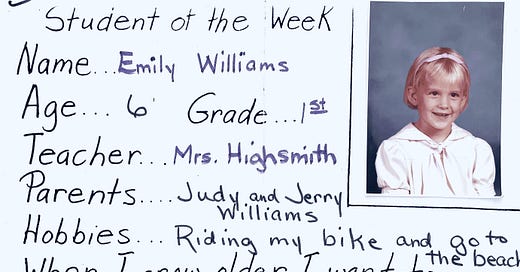 Student of the Week
Name...Emily Williams
Age... 6 Grade...1st
Teacher... Mrs. Highsmith
Parents....Judy and Jerry
Williams
Hobbies... Riding my bike and go to
the beach
When I grow older I want to